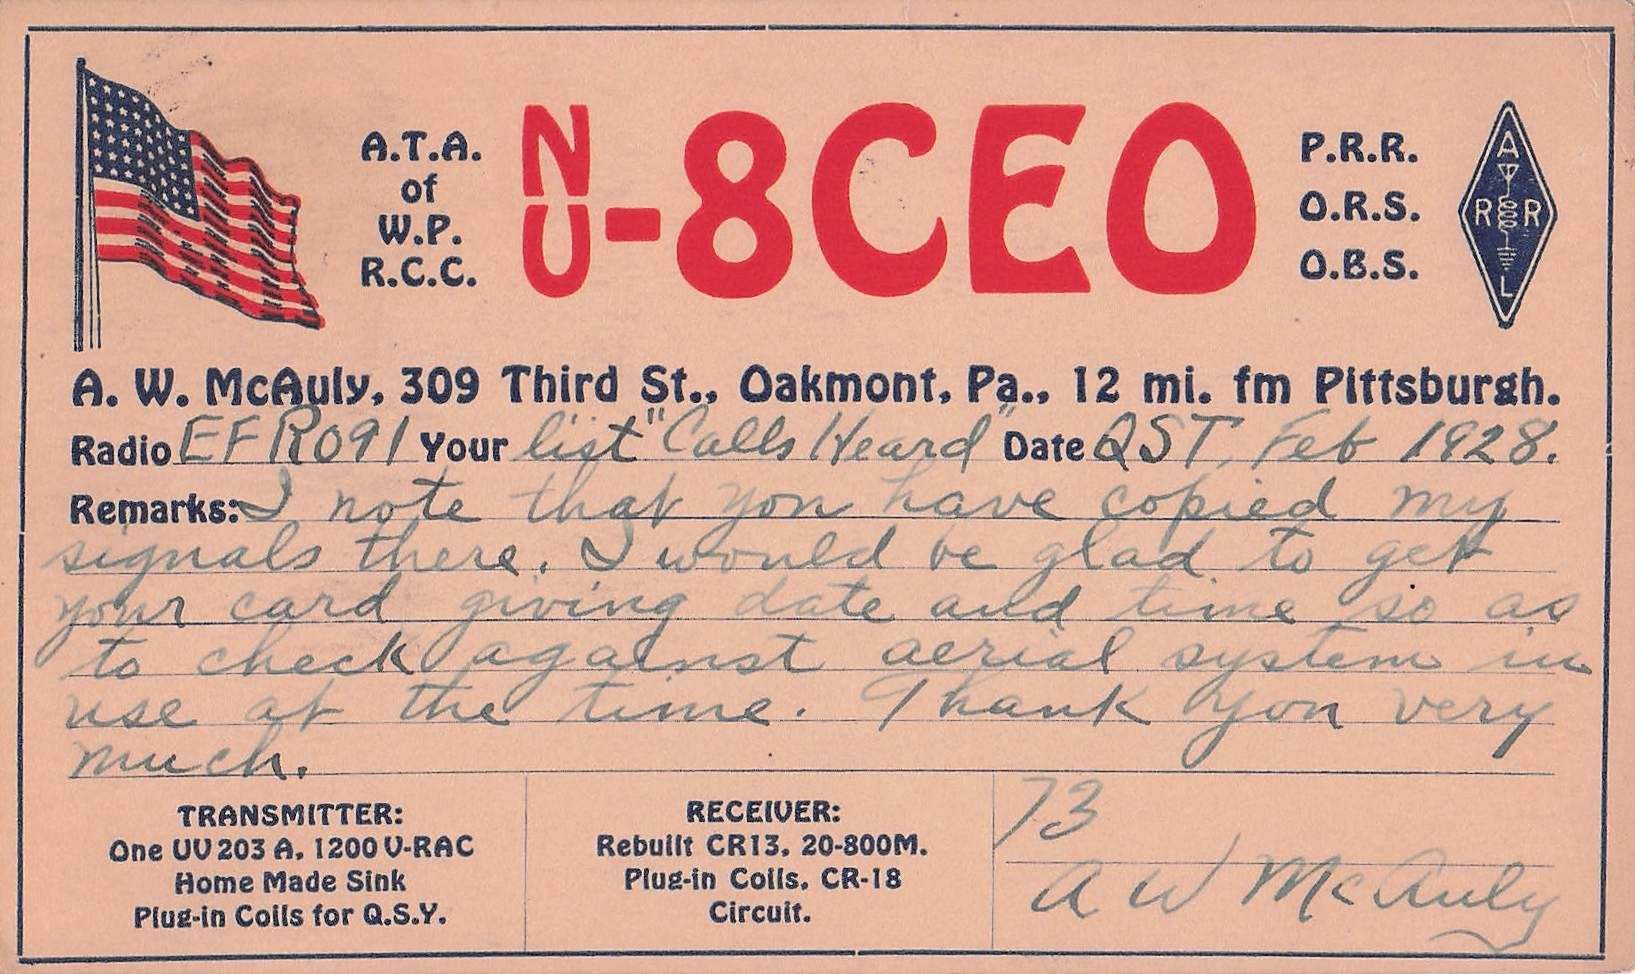 A.T.A.
of
W.P.
R.C.C.
NU-8CEO
P.R.R.
O.R.S.
O.B.S.
A
R R
L
A. W. McAuly, 309 Third St., Oakmont, Pa., 12 mi. fm Pittsburgh.
Radio EFR091 Your list "Calls Heard" Date QST, Feb 1928.
Remarks: I note that you have copied my
signals there. I would be glad to get
your card giving date and time so as
to check against aerial system in
use at the time. Thank you very
much.
TRANSMITTER:
One UV 203 A, 1200 V-RAC
Home Made Sink
Plug-in Coils for Q.S.Y.
RECEIVER:
Rebuilt CR13, 20-800M.
Plug-in Coils, CR-18
Circuit.
73
A W McAuly